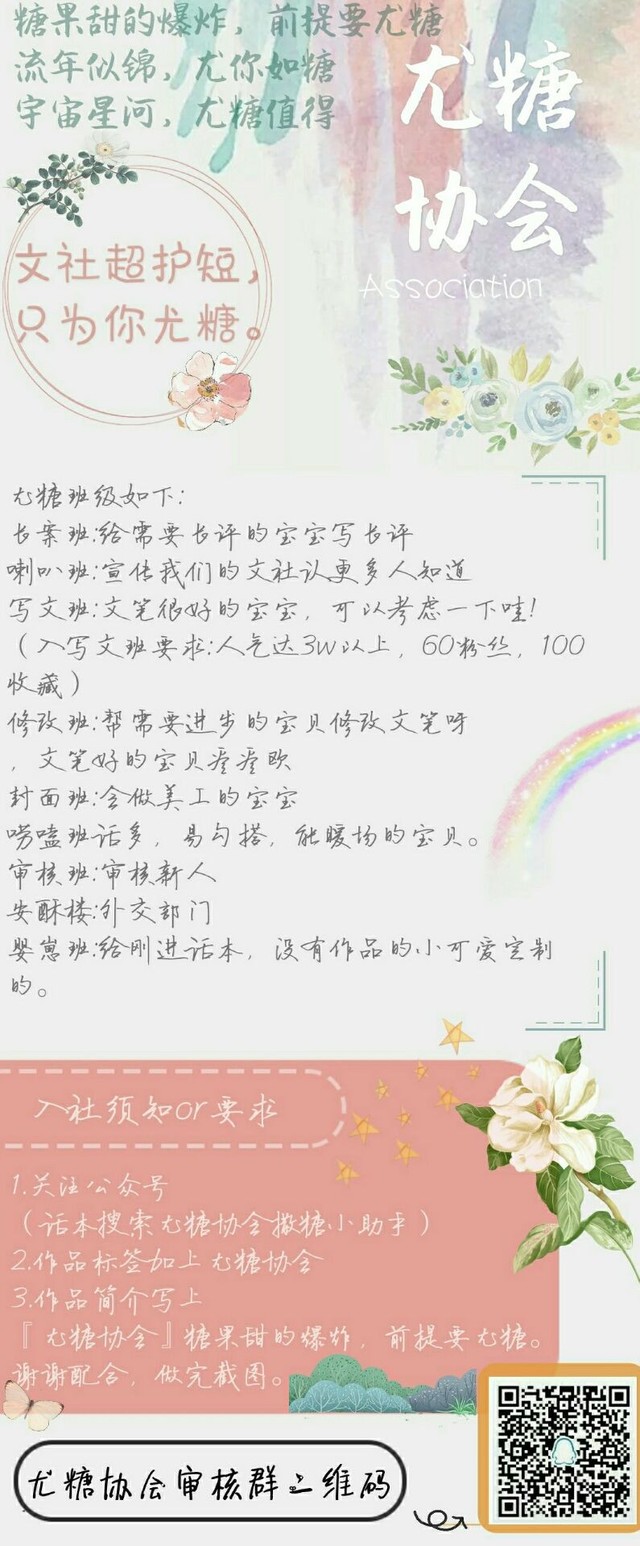 糖果甜的爆炸，前提要尤糖
流年似锦，尤你如糖
宇宙星河，尤糖值得
尤糖
协会
Association
文社超护短，
只为你尤糖。
尤糖班级如下：
长案班:给需要长评的宝宝写长评
喇叭班:宣传我们的文社认更多人知道
写文班:文笔很好的宝宝，可以考虑一下哇!
（入写文班要求:人气达3w以上，60粉丝，100
收藏）
修改班:帮需要进步的宝贝修改文笔呀
，文笔好的宝贝瘗瘗欧
封面班:会做美工的宝宝
唠嗑班话多，易勾搭，能暖场的宝贝。
审核班:审核新人
安酥楼:外交部门
婴崽班:给刚进话本，没有作品的小可爱定制
的。
入社须知or要求
1.关注公众号
（话本搜索尤糖协会撒糖小助手）
2.作品标签加上尤糖协会
3.作品简介写上
『尤糖协会』糖果甜的爆炸，前提要尤糖。
谢谢配合，做完截图。
尤糖协会审核群二维码